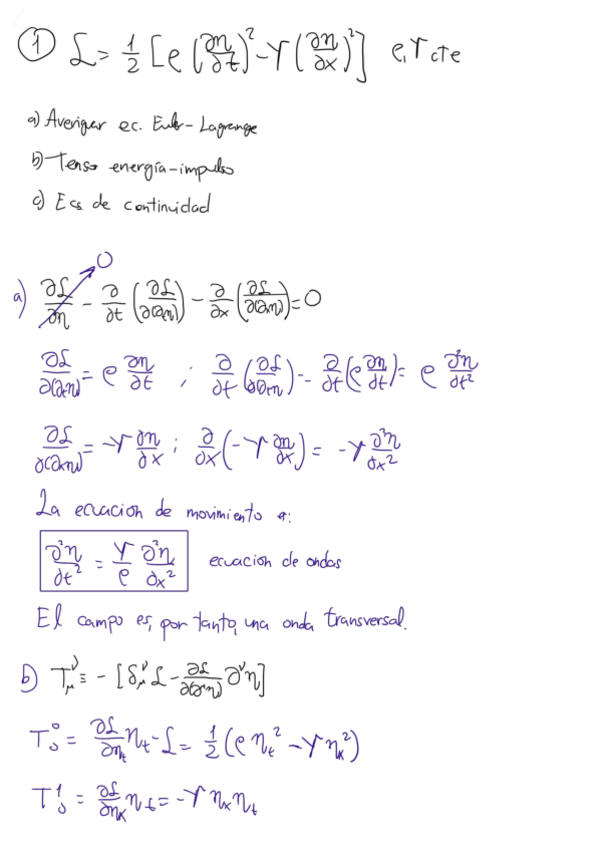 ① ℒ = 1/2 [ρ (∂η/∂t)² - Y (∂η/∂x)²] ρ, Y cte
a) Averiguar ec. Euler-Lagrange
b) Tensor energía-impulso
c) Ecs de continuidad
a) ∂ℒ/∂η → 0 - ∂/∂t (∂ℒ/∂(∂tη)) - ∂/∂x (∂ℒ/∂(∂xη)) = 0
∂ℒ/∂(∂tη) = ρ ∂η/∂t ; ∂/∂t (∂ℒ/∂(∂tη)) = ∂/∂t (ρ ∂η/∂t) = ρ ∂²η/∂t²
∂ℒ/∂(∂xη) = -Y ∂η/∂x ; ∂/∂x (-Y ∂η/∂x) = -Y ∂²η/∂x²
La ecuacion de movimiento es:
∂²η/∂t² = Y/ρ ∂²η/∂x² ecuación de ondas
El campo es, por tanto, una onda transversal.
b) T_μ^ν ≡ - [δ_μ^ν ℒ - ∂ℒ/∂(∂^μη) ∂^νη]
T_0^0 = ∂ℒ/∂η_t η_t - ℒ = 1/2 (ρ η_t² - Y η_x²)
T_0^1 = ∂ℒ/∂η_x η_t = -Y η_x η_t